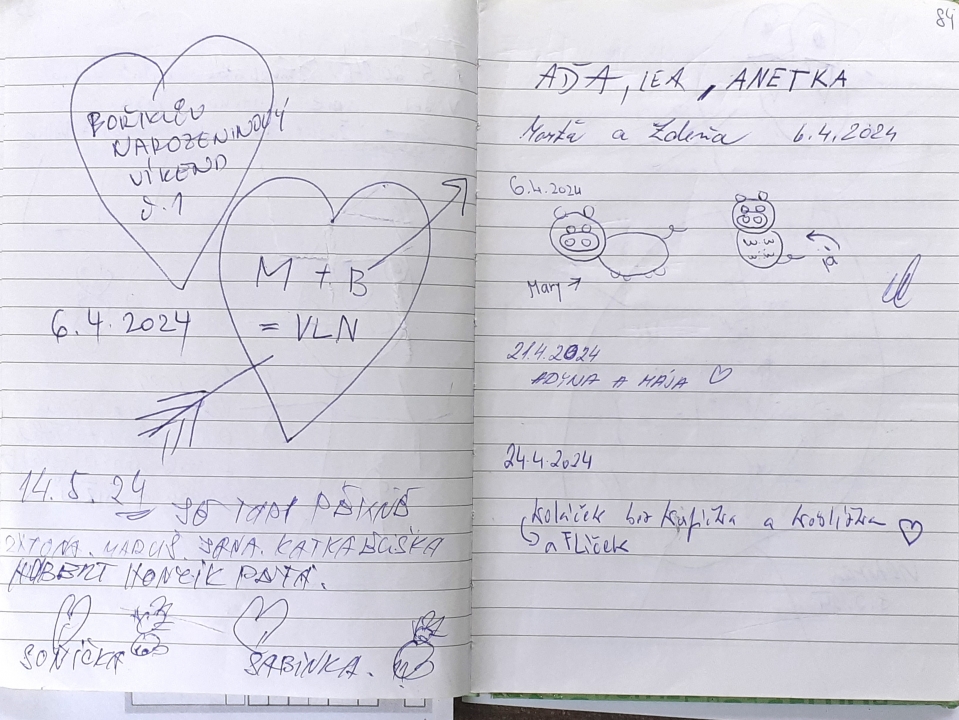 BOŘIKŮV
NAROZENINOVÝ
VÍKEND
č.1
M + B
= VLN
6.4.2024
14.5.24 JE TADY PĚKNĚ
JANA. KATKA
HUBERT HONZÍK PÁŤA.
SONIČKA
SABINKA.
84
AĎA, LEA, ANETKA
a Zdeňa 6.4.2024
6.4.2024
Mary
já
21.4.2024
ADYNA A MÁJA
24.4.2024
Koláček bez a Koblížka
a Flíček